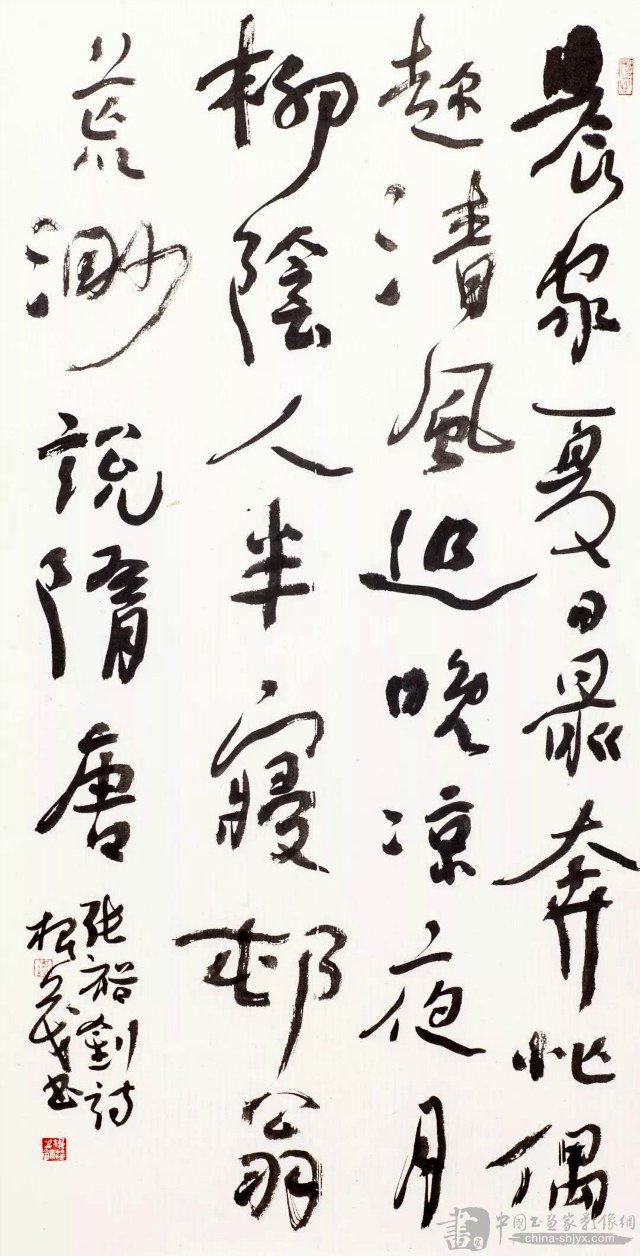 農家夏日最奔忙偶
趁清風追晚凉夜月
柳陰人半寢邨翁
荒渺説隋唐
张裕釗詩
书
書
中國书画家影像網
china-shjyx.com